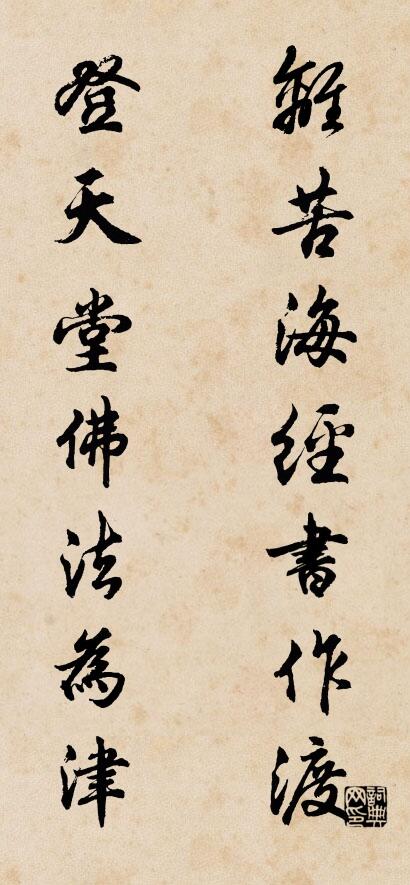 離苦海經書作渡
登天堂佛法為津
詞典网印